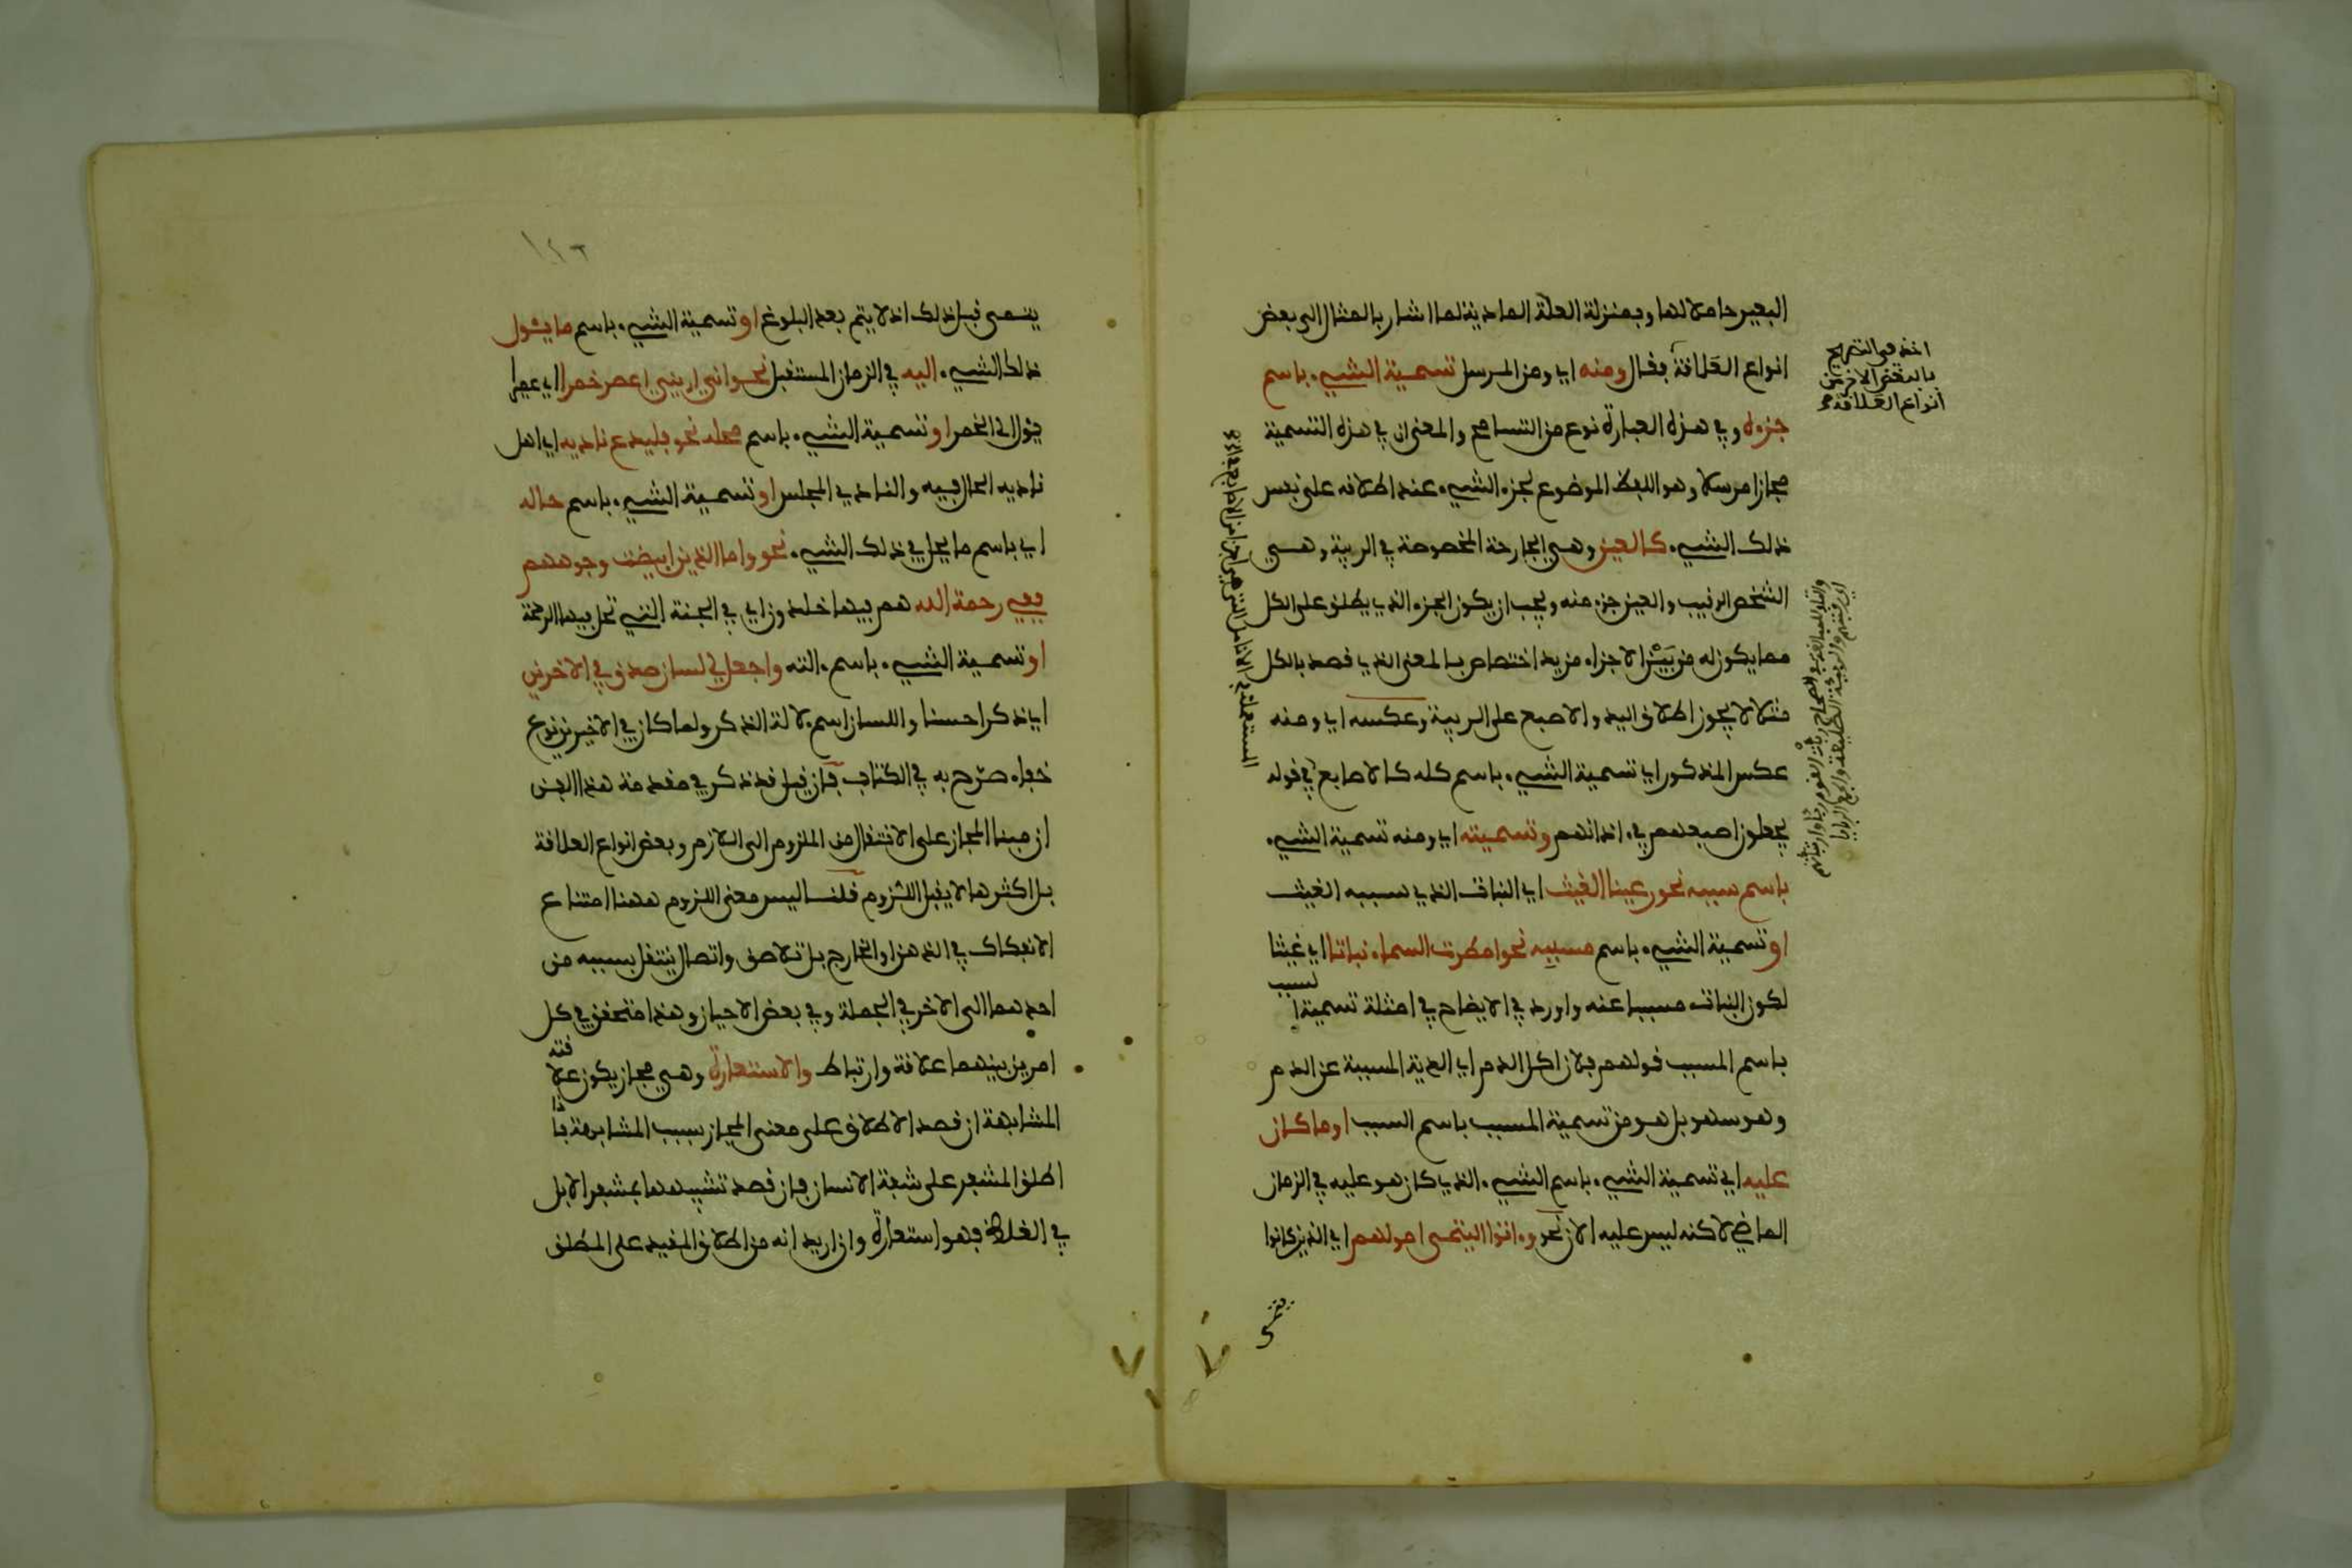 البعير حاملا لها وبمنزلة العلة المادية لما اشار بالمثال الى بعض
انواع العلاقة فقال ومنه اي ومن المرسل تسمية الشيء باسم
جزءه وفي هذه العبارة نوع من التسامح والمعنى ان في هذه التسمية
مجازا مرسلا وهو اللفظ الموضوع لجزء الشيء عند اطلاقه على نفس
ذلك الشيء كالعين وهي الجارحة المخصوصة في الربية وهي
الشخص الرقيب والعين جزء منه ويجب ان يكون الجزء الذي يطلق على الكل
مما يكون له من بين الاجزاء مزيد اختصاص بالمعنى الذي قصد بالكل
مثلا لا يجوز اطلاق اليد والاصبع على الربية وعكسه اي ومنه
عكس المذكور اي تسمية الشيء باسم كله كالاصابع في قوله
يجعلون اصبعهم في ءاذانهم وتسميته اي ومنه تسمية الشيء
باسم سببه نحو رعينا الغيث اي النبات الذي سببه الغيث
او تسمية الشيء باسم مسببه نحو امطرت السماء نباتا اي غيثا
لكون النبات مسببا عنه واورد في الايضاح في امثلة تسمية السبب
باسم المسبب قولهم فلان اكل الدم اي الدية المسببة عن الدم
وهو سهو بل هو من تسمية المسبب باسم السبب او ما كان
عليه اي تسمية الشيء باسم الشيء الذي كان هو عليه في الزمان
الماضي لاكنه ليس عليه الان نحو وءاتوا اليتمى امولهم اي الذين كانوا
اخذ في التصريح
بالبعض الاخر من
انواع العلاقة
يتمى قبل ذلك اذ لا يتم بعد البلوغ او تسمية الشيء باسم ما يئول
ذلك الشيء اليه في الزمان المستقبل نحو اني اريني اعصر خمرا اي عصيرا
يئول الى الخمر او تسمية الشيء باسم محله نحو فليدع ناديه اي اهل
ناديه الحال فيه والنادي المجلس او تسمية الشيء باسم حاله
اي باسم ما يحل في ذلك الشيء نحو واما الذين ابيضت وجوههم
ففي رحمة الله هم فيها خلدون اي في الجنة التي تحل فيها الرحمة
او تسمية الشيء باسم ءالته واجعل لي لسان صدق في الاخرين
اي ذكرا حسنا واللسان اسم لالة الذكر ولما كان في الاخيرين نوع
خفاء صرح به في الكتاب فان قيل قد ذكر في مقدمة هذا الفن
ان مبنا المجاز على الانتقال من الملزوم الى اللازم وبعض انواع العلاقة
بل اكثرها لا يفيد اللزوم قلنا ليس معنى اللزوم ههنا امتناع
الانفكاك في الذهن او الخارج بل تلاصق واتصال ينتقل بسببه من
احدهما الى الاخر في الجملة وفي بعض الاحيان وهذا متحقق في كل
امرين بينهما علاقة وارتباط والاستعارة وهي مجاز يكون علاقته
المشابهة ان قصد الاطلاق على معنى المجاز بسبب المشابهة فاذا
اطلق المشفر على شفة الانسان فان قصد تشبيهها بمشفر الابل
في الغلظ فهو استعارة وان اريد انه من اطلاق المقيد على المطلق